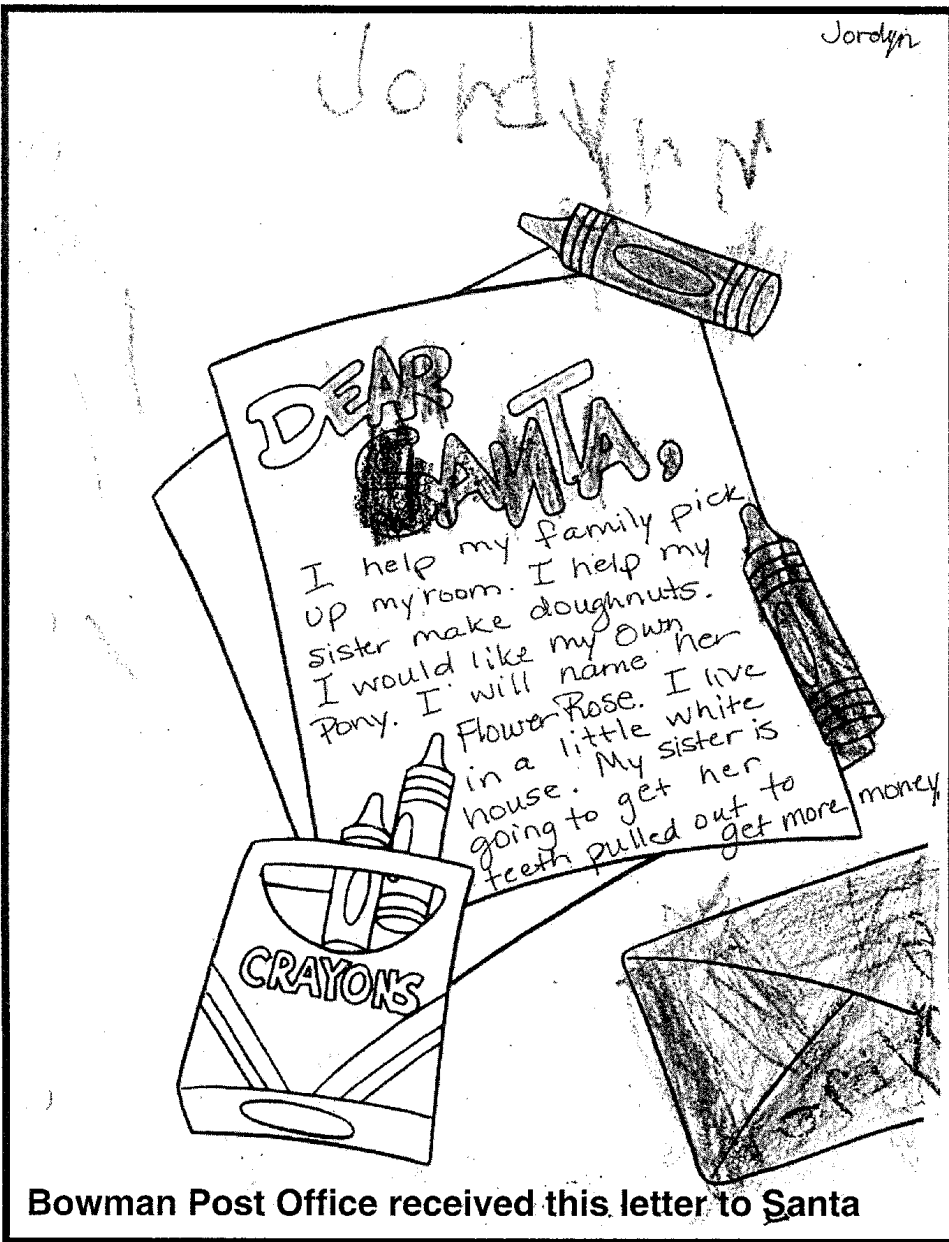 Jordyn
Jordynn
DEAR
SANTA,
I help my family pick
up my room. I help my
sister make doughnuts.
I would like my own
Pony. I will name her
Flower Rose. I live
in a little white
house. My sister is
going to get her
teeth pulled out to
get more money
CRAYONS
Bowman Post Office received this letter to Santa